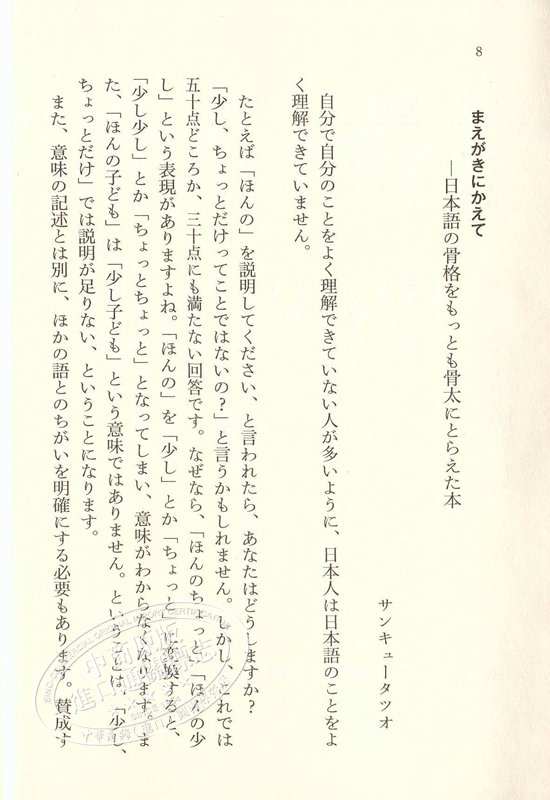 8
まえがきにかえて
―日本語の骨格をもっとも骨太にとらえた本
サンキュータツオ
自分で自分のことをよく理解できていない人が多いように、日本人は日本語のことをよ
く理解できていません。
たとえば「ほんの」を説明してください、と言われたら、あなたはどうしますか?
「少し、ちょっとだけってことではないの?」と言うかもしれません。しかし、これでは
五十点どころか、三十点にも満たない回答です。なぜなら、「ほんのちょっと」「ほんの少
し」という表現がありますよね。「ほんの」を「少し」とか「ちょっと」に変換すると、
「少し少し」とか「ちょっとちょっと」となってしまい、意味がわからなくなります。ま
た、「ほんの子ども」は「少し子ども」という意味ではありません。ということは、「少し、
ちょっとだけ」では説明が足りない、ということになります。
また、意味の記述とは別に、ほかの語とのちがいを明確にする必要もあります。賛成す